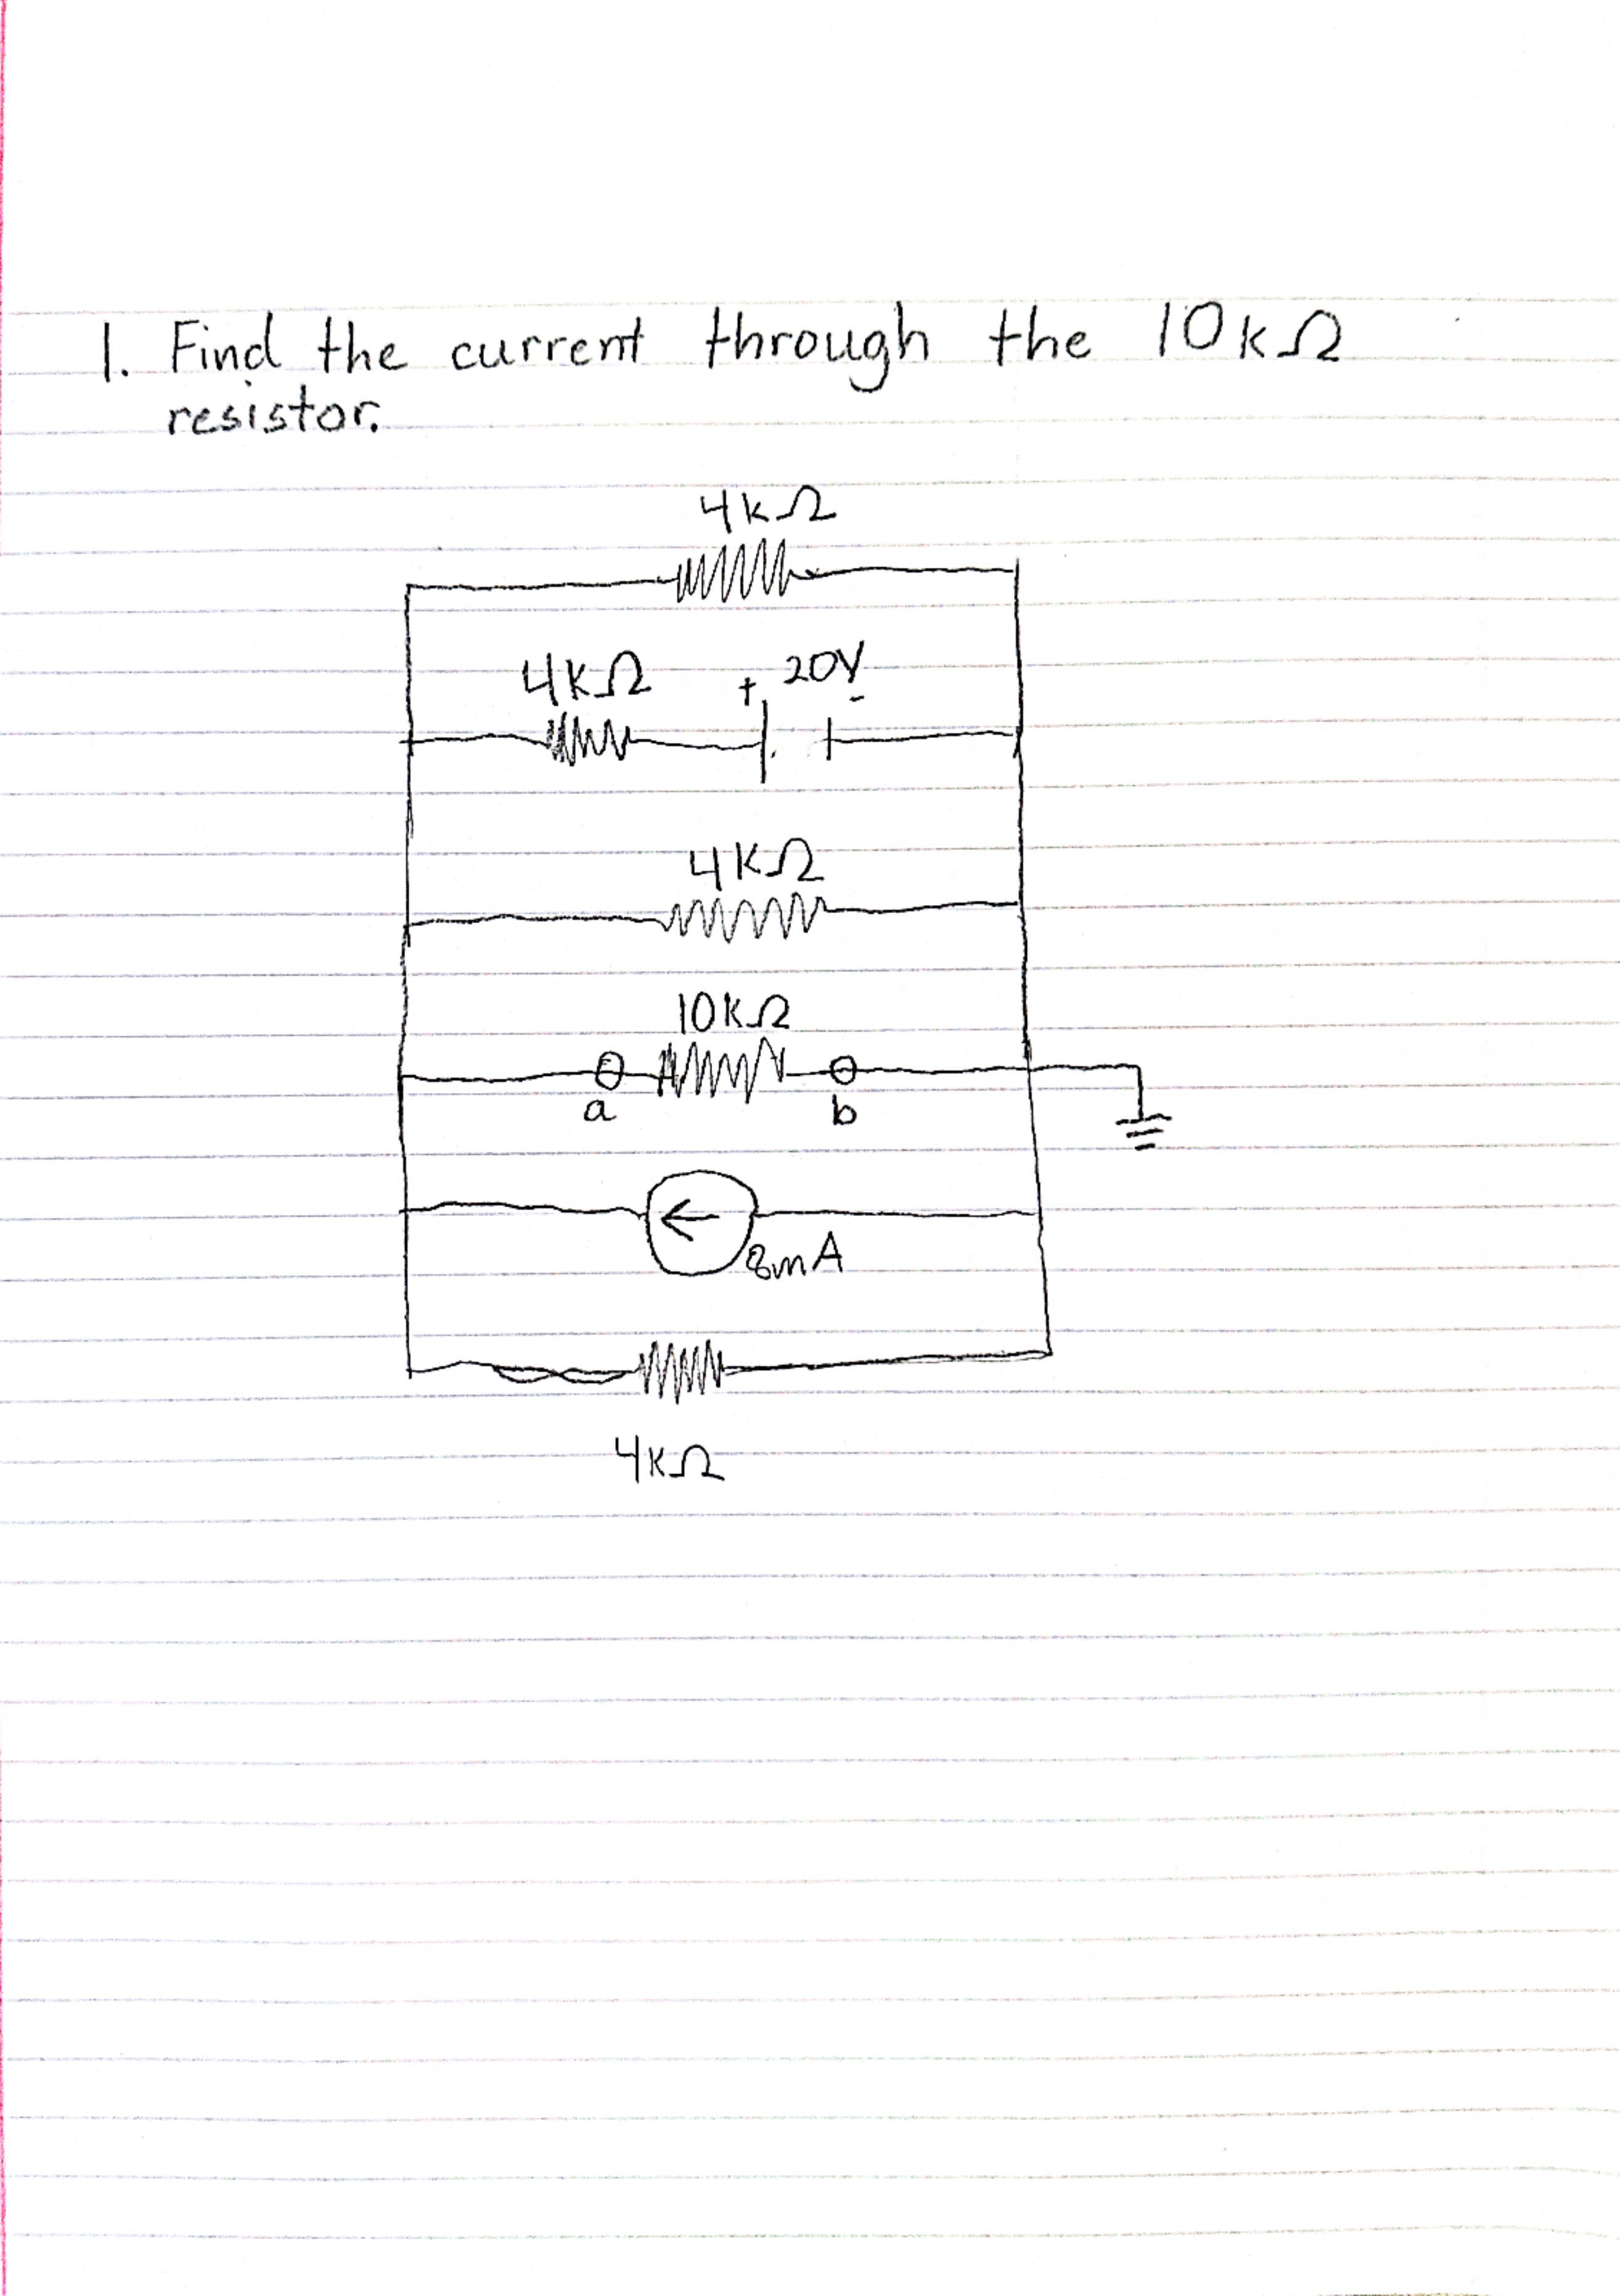 1. Find the current through the 10kΩ
resistor.
4kΩ
4kΩ + 20V -
4kΩ
10kΩ
a b
8mA
4kΩ